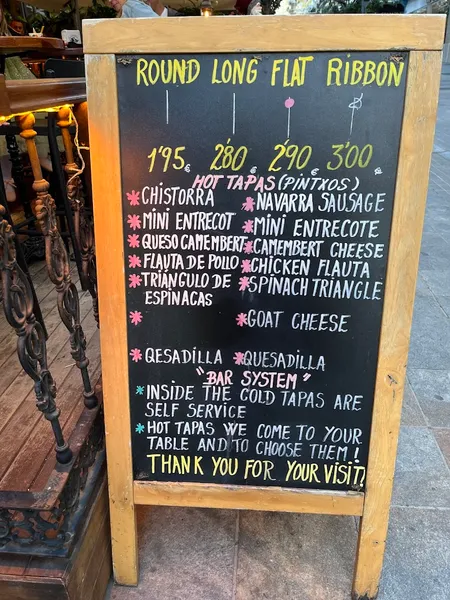 ROUND LONG FLAT RIBBON
1'95€ 280€ 290€ 3'00€
HOT TAPAS (PINTXOS)
* CHISTORRA * NAVARRA SAUSAGE
* MINI ENTRECOT * MINI ENTRECOTE
* QUESO CAMEMBERT * CAMEMBERT CHEESE
* FLAUTA DE POLLO * CHICKEN FLAUTA
* TRIÁNGULO DE * SPINACH TRIANGLE
ESPINACAS
* * GOAT CHEESE
* QESADILLA * QUESADILLA
"BAR SYSTEM"
* INSIDE THE COLD TAPAS ARE
SELF SERVICE
* HOT TAPAS WE COME TO YOUR
TABLE AND TO CHOOSE THEM!
THANK YOU FOR YOUR VISIT!